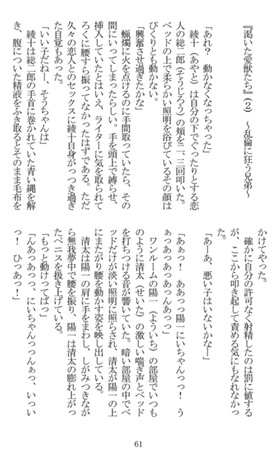 『渇いた愛獣たち』（２）　～乱倫に狂う兄弟～
「あれ？　動かなくなっちゃった」
　綾十（あやと）は自分の下でぐったりとする恋
人の総二郎（そうじろう）の頬を二、三回叩いた。
ベッドの上で柔らかい照明を浴びているその顔は
ぴくりとも動かない。
「興奮させ過ぎたかな」
　蝋燭に火を点けるのに手間取っていたら、その
間にいってしまったらしい。手を頭上で縛らせ、
挿入していたとはいえ、ライターに気を取られて
ろくに腰すら振ってなかったはずである。ただ、
久々の恋人とのセックスに綾十自身がっつき過ぎ
た自覚もあった。
「いい子だねー、そうちゃんは」
　綾十は総二郎の手首に巻かれていた青い縄を解
き、腹についた精液をふき取るとそのまま毛布を
かけてやった。
　確かに自分の許可なく射精したのは罰に値する
が、ここから叩き起して責める気にもなれなかっ
た。
「あーあ、悪い子はいないかなー」

「ああぁ！　あああっっ陽一にいちゃんっっ！　う
あっぁあっあんあっっ」
　ワンルームの陽一（よういち）の部屋でいつも
のように清太（せいた）の激しい喘ぎ声とベッド
を打ちつける音が響いていた。暗い部屋の中でベ
ッドだけが淡い照明に照らされ、清太が陽一の上
にまたがり腰を動かす姿を映し出している。
　清太は陽一の肩に手をまわし、しがみつきなが
ら無我夢中で腰を振り、陽一は清太の膨れ上がっ
たペニスを扱き上げている。
「もっと動けってばっ」
「んあっあっっ、にいちゃんっっんぁっ、いっい
っ！　ひっあっ！」
61